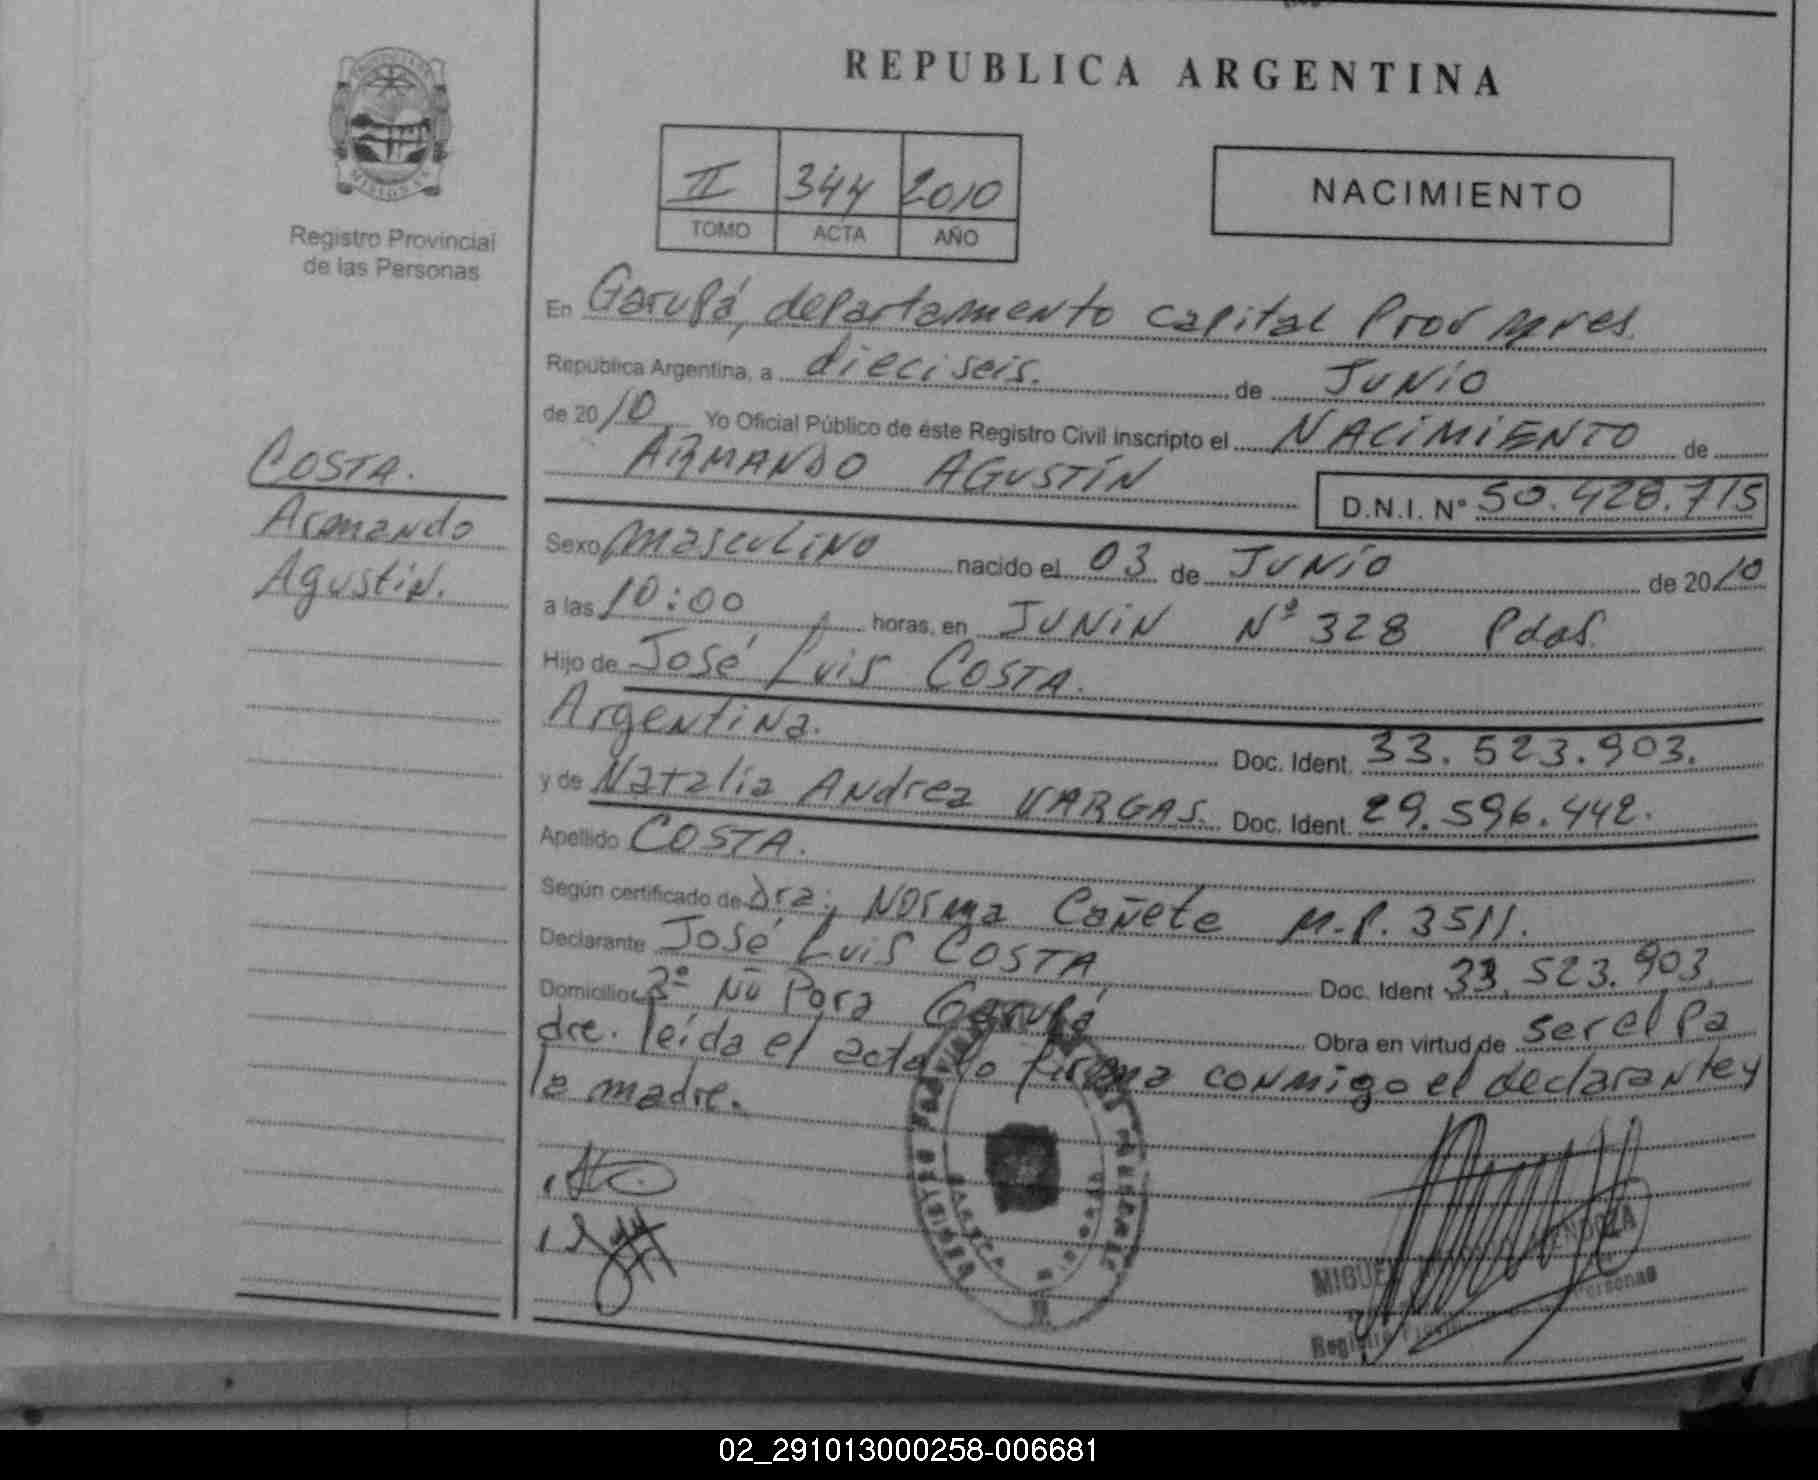 REPUBLICA ARGENTINA
PROVINCIA DE MISIONES
Registro Provincial
de las Personas
II 344 2010
TOMO ACTA AÑO
NACIMIENTO
En Garupá, departamento capital Prov Mnes.
República Argentina, a dieciseis. de JUNIO
de 20 10 Yo Oficial Público de éste Registro Civil inscripto el NACIMIENTO de
ARMANDO AGUSTÍN D.N.I. Nº 50.428.715
COSTA.
Armando
Agustin.
Sexo masculino nacido el 03 de JUNIO de 20 10
a las 10:00 horas, en JUNIN Nº 328 Pdas.
Hijo de José Luis COSTA.
Argentina. Doc. Ident. 33.523.903.
y de Natalia Andrea VARGAS. Doc. Ident. 29.596.442.
Apellido COSTA.
Según certificado de Dra; Norma Cañete M.P. 3511.
Declarante José Luis COSTA Doc. Ident 33.523.903.
Domicilio Ñu Pora Garupá Obra en virtud de ser el Pa
dre. leída el acta lo firma conmigo el declarante y
la madre.
MIGUEL MENDOZA
Registro Personas
02_291013000258-006681